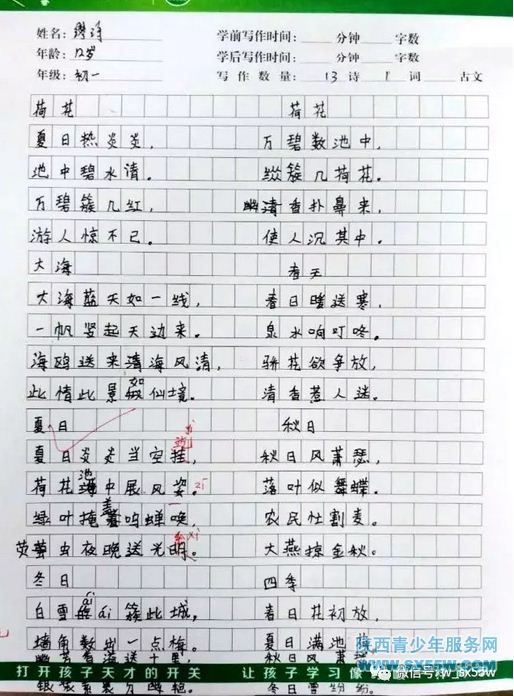 姓名：缪诗 学前写作时间： 分钟 字数
年龄：12岁 学后写作时间： 分钟 字数
年级：初一 写作数量：13诗 1词 古文
荷花
夏日热炎炎，
池中碧水清。
万碧簇几红，
游人惊不已。
荷花
万碧数池中，
簇几荷花。
幽清香扑鼻来，
使人沉其中。
大海
大海蓝天如一线，
一帆竖起天边来。
海鸥送来清海风清，
此情此景如仙境。
春天
春日暖送寒，
泉水响叮咚。
骄花欲争放，
清香惹人迷。
夏日
夏日炎炎当空挂，
荷花池中展风姿。zī
绿叶掩盖鸣蝉唤，
荧萤虫夜晚送光明。
秋日
秋日风萧瑟，
落叶似舞蝶。
农民忙割麦。
大燕掠金秋。
冬日
白雪ái ái簇此城，
墙角数出一点梅。
幽芳香溢送十里，
四季
春日花初放，
夏日满池
秋日风萧
冬日雪纷纷
打开孩子天才的开关 让孩子学习像
陕西青少年服务网
WWW.SX55W.COM
微信号：W_sx55w